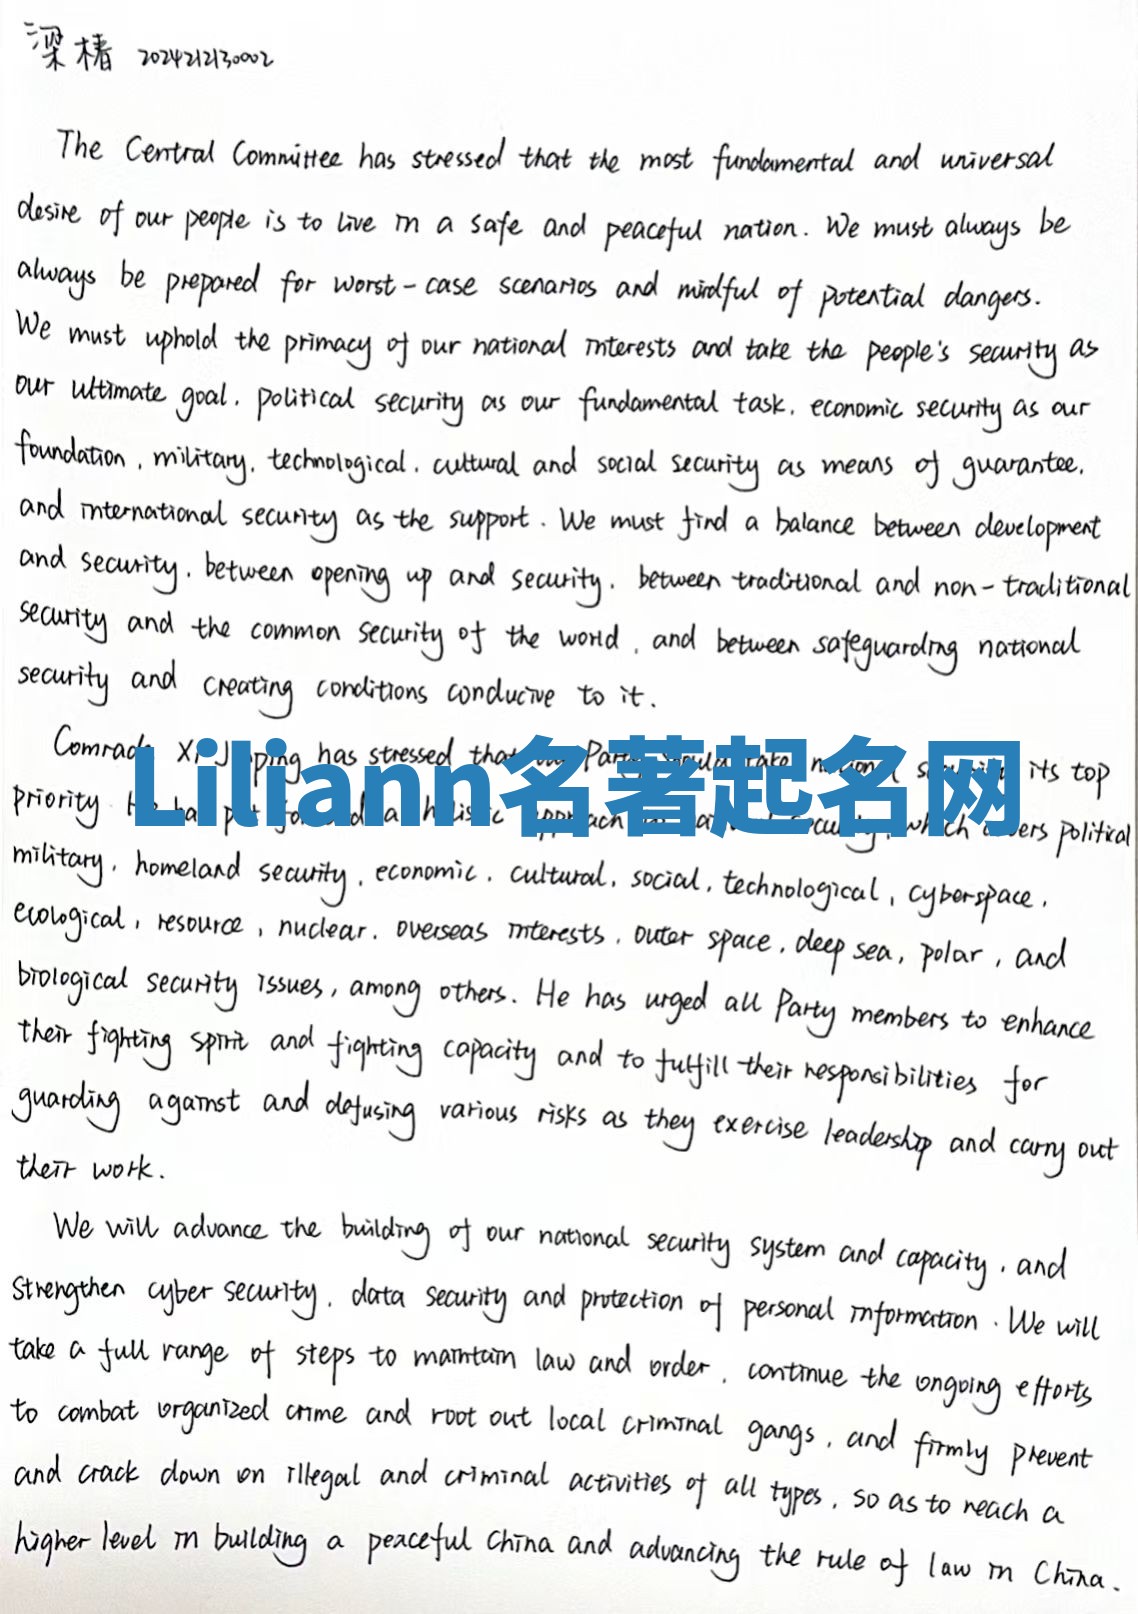 梁椿 2024212130002
The Central Committee has stressed that the most fundamental and universal
desire of our people is to live in a safe and peaceful nation. We must always be
always be prepared for worst-case scenarios and mindful of potential dangers.
We must uphold the primacy of our national interests and take the people's security as
our ultimate goal, political security as our fundamental task, economic security as our
foundation, military, technological, cultural and social security as means of guarantee,
and international security as the support. We must find a balance between development
and security, between opening up and security, between traditional and non-traditional
security and the common security of the world, and between safeguarding national
security and creating conditions conducive to it.
Comrade Xi Jinping has stressed that Party take national its top
Liliann名著起名网
priority. He has put a approach security, which covers political
military, homeland security, economic, cultural, social, technological, cyberspace,
ecological, resource, nuclear, overseas interests, outer space, deep sea, polar, and
biological security issues, among others. He has urged all Party members to enhance
their fighting spirit and fighting capacity and to fulfill their responsibilities for
guarding against and defusing various risks as they exercise leadership and carry out
their work.
We will advance the building of our national security system and capacity, and
strengthen cyber security, data security and protection of personal information. We will
take a full range of steps to maintain law and order, continue the ongoing efforts
to combat organized crime and root out local criminal gangs, and firmly prevent
and crack down on illegal and criminal activities of all types, so as to reach a
higher level in building a peaceful China and advancing the rule of law in China.